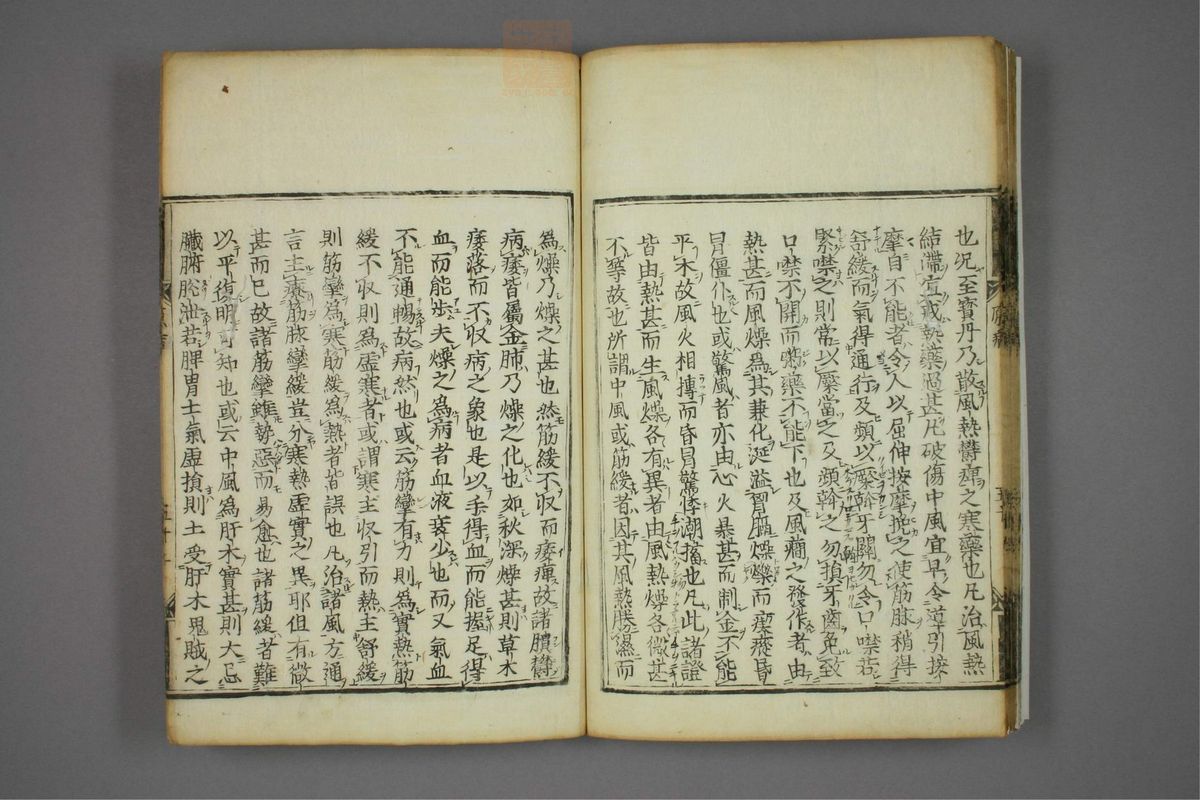 也况至寳丹乃散風熱欝痞之寒藥也凡治風熱
結滯宜戒熱藥過甚凡破傷中風宜早令導引按
摩自不能者令人以屈伸按摩挽之使筋脉稍得
舒緩而氣得通行及頻以橜幹牙關勿令口噤若
緊噤之則常以橜當之及頻幹之勿損牙齒免致
口噤不開而粥藥不能下也及風癎之發作者由
熱甚而風燥爲其兼化涎溢胷膈燥爍而瘈瘲昏
冒僵仆也或驚風者亦由心火暴甚而制金不能
平木故風火相摶而昏冒驚悸潮搐也凡此諸證
皆由熱甚而生風燥各有異者由風熱燥各微甚
不等故也所謂中風或筋緩者因其風熱勝濕而
爲燥乃燥之甚也然筋緩不收而痿痺故諸膹欝
病痿皆屬金肺乃燥之化也如秋深燥甚則草木
痿落而不収病之象也是以手得血而能握足得
血而能步夫燥之爲病者血液衰少也而又氣血
不能通暢故病然也或云筋攣有力則爲實熱筋
緩不収則爲虚寒者或謂寒主収引而熱主舒緩
則筋攣爲寒筋緩爲熱者皆誤也凡治諸風方通
言主療筋脉攣緩豈分寒熱虚實之異耶但有微
甚而已故諸筋攣雖勢惡而易愈也諸筋緩者難
以平復明可知也或云中風爲肝木實甚則大忌
臓腑脱泄若脾胃土氣虚損則土受肝木鬼賊之